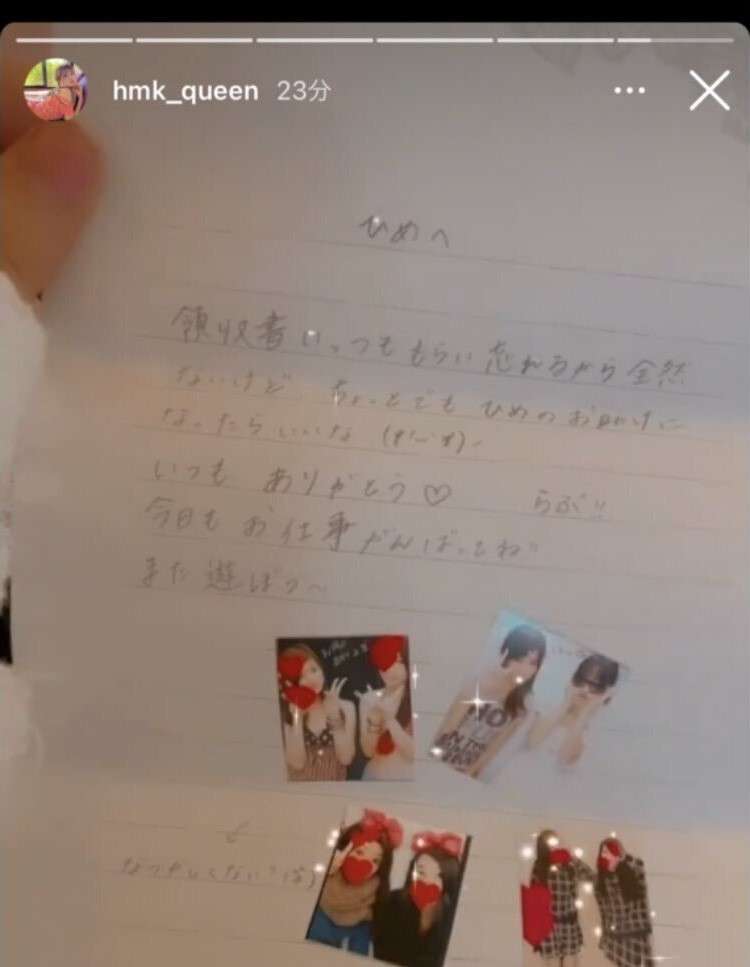 hmk_queen 23分
ひめへ
領収書いっつももらい忘れるから全然
ないけど ちょっとでもひめのお助けに
なったらいいな
いつもありがとう♡ らぶ!!
今日もお仕事がんばってね!!
また遊ぼう〜
NO
IN THE
なつかしくない?